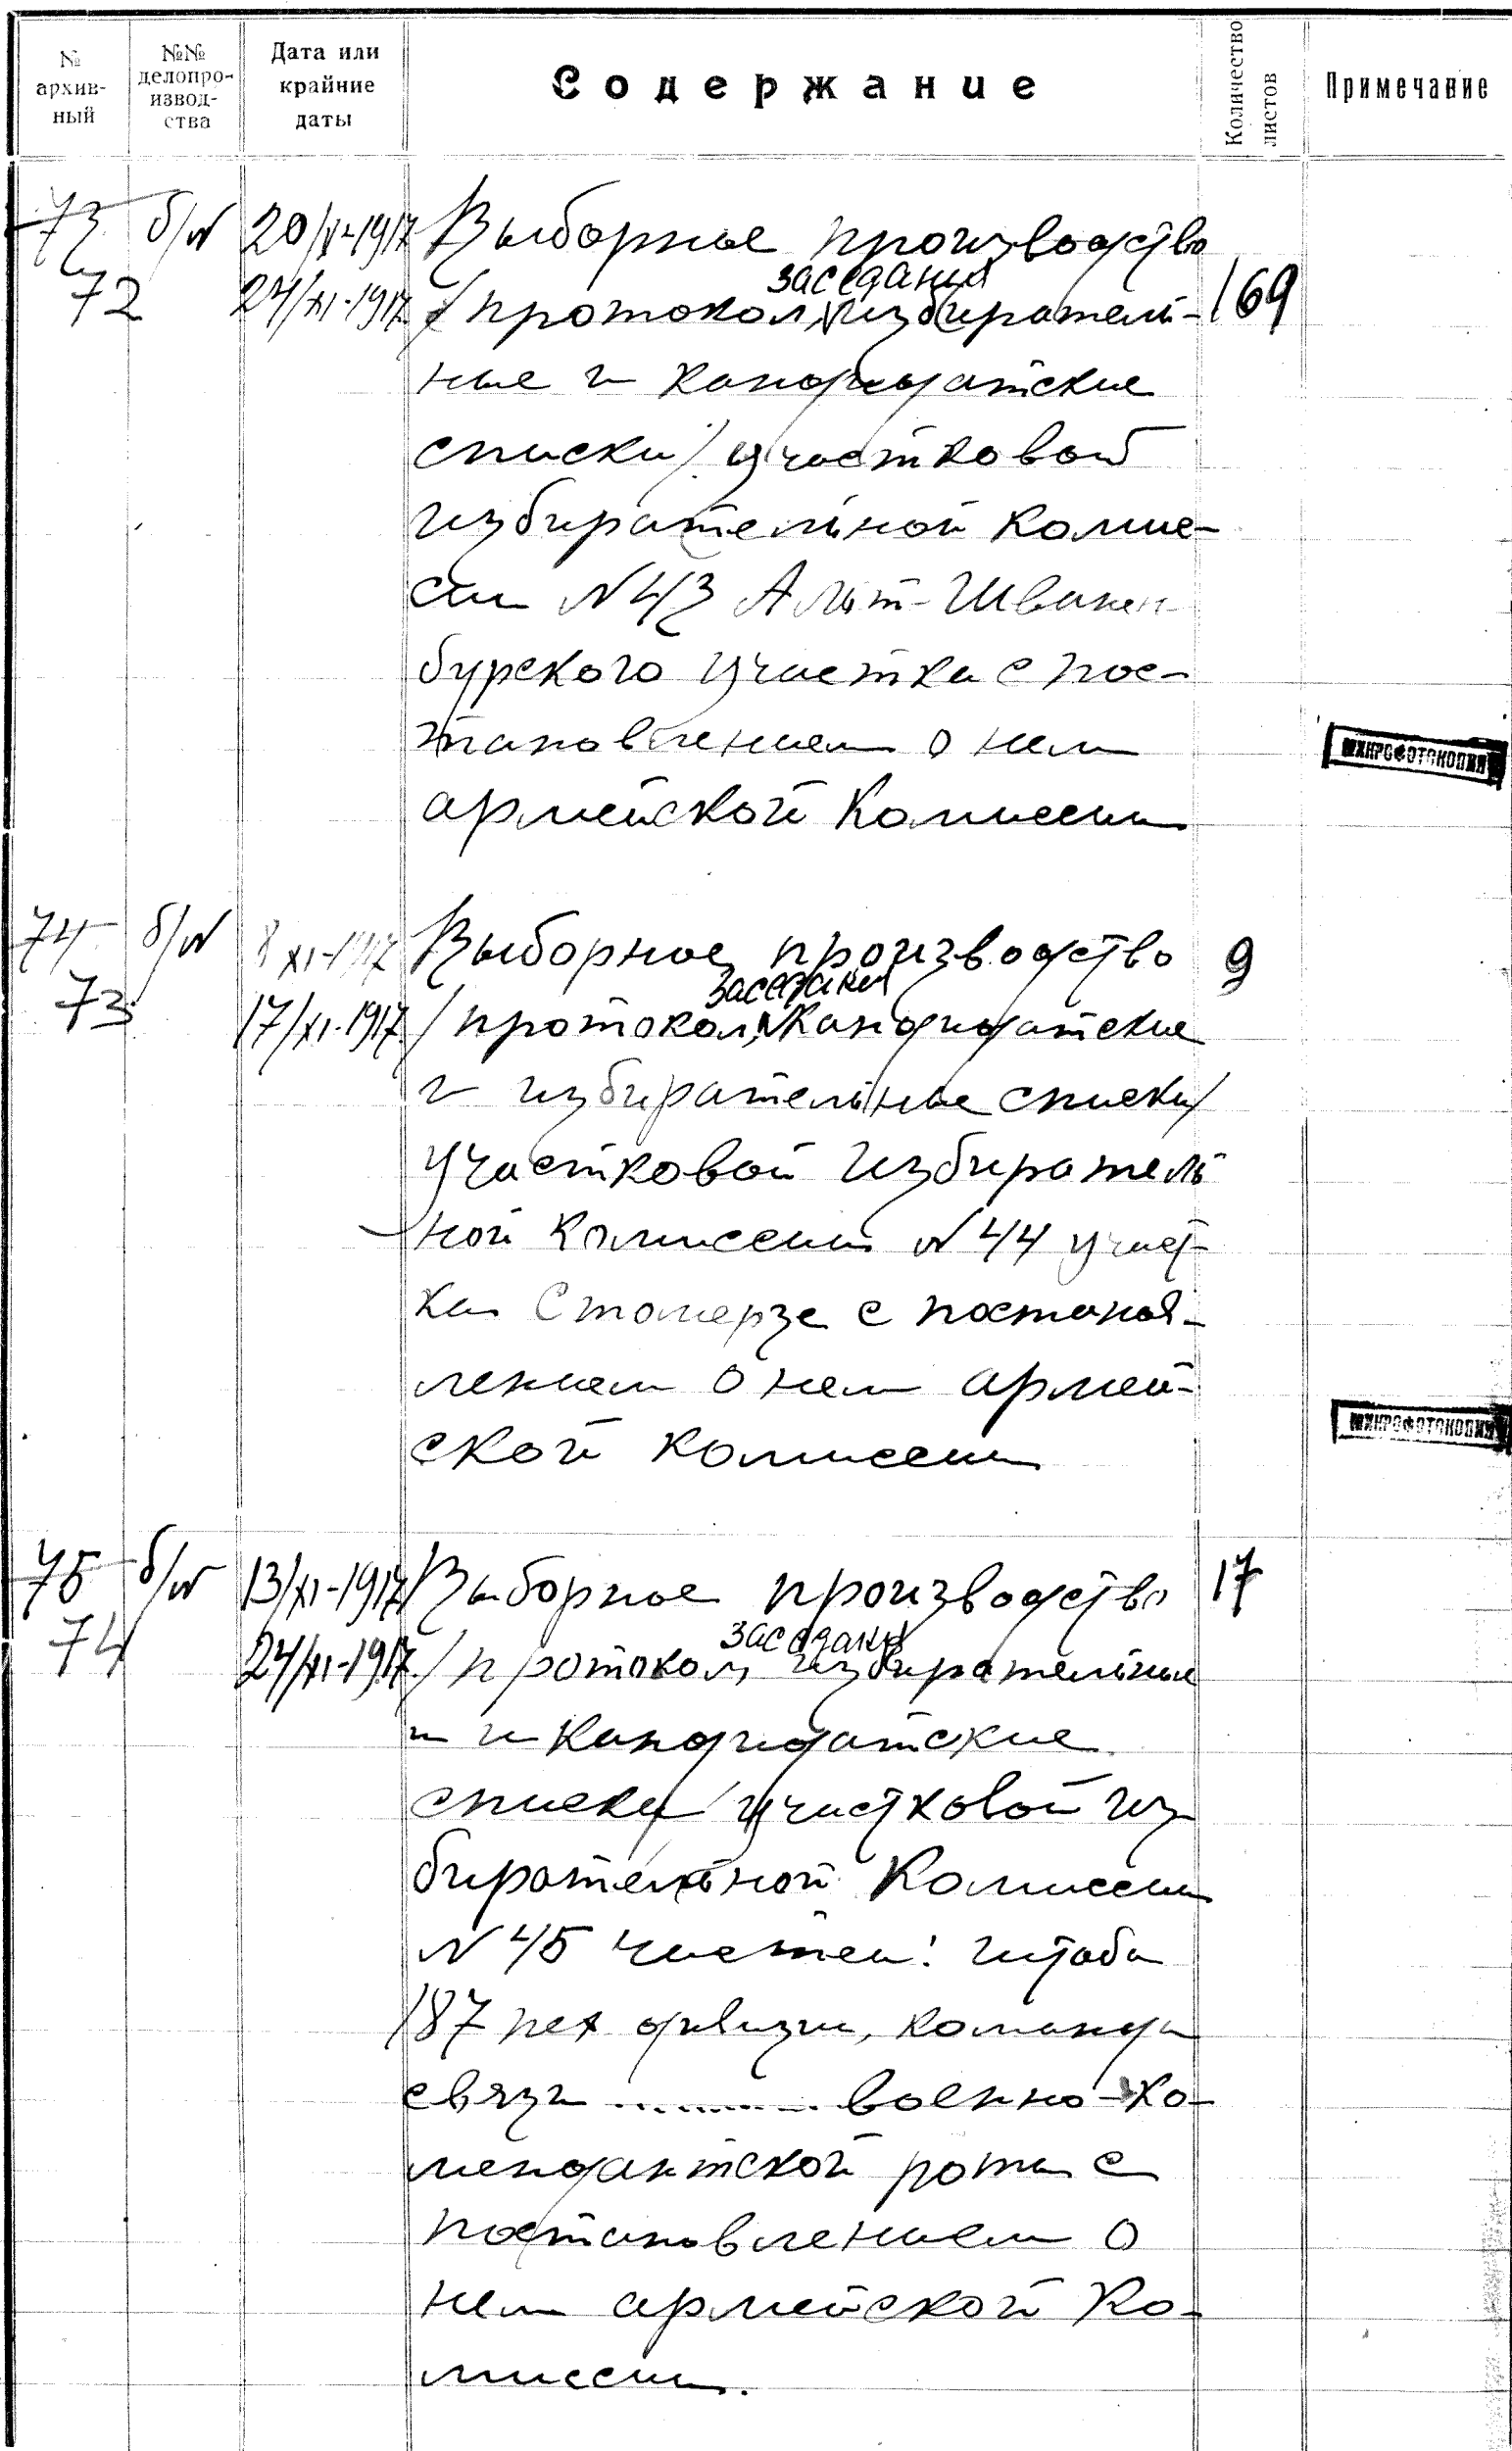 № архив- ный
№№ делопро- извод- ства
Дата или крайние даты
Содержание
Количество листов
Примечание
73 б/№ 20/X-1917 Выборное производство
заседания
72 24/XI-1917 /протокол, избиратель- 169
ные и кандидатские
списки/ участковой
избирательной комис-
сии №43 Альт-Шванен-
бургского участка с пос-
тановлением о нем
армейской Комиссии
МИКРОФОТОКОПИЯ
74 б/№ 8 XI-1917 Выборное производство 9
заседания
73 17/XI-1917 /протокол, кандидатские
и избирательные списки/
участковой избиратель
ной комиссии №44 участ-
ка Стомерзе с постанов-
лением о нем армей-
ской комиссии
МИКРОФОТОКОПИЯ
75 б/№ 13/XI-1917 Выборное производство 17
заседания
74 24/XI-1917 /протокол, избирательные
и кандидатские
списки/ участковой из
бирательной Комиссии
№45 частей: штаба
187 пех дивизии, команды
связи ........... военно-ко-
мендантской роты с
постановлением о
нем армейской Ко-
миссии.